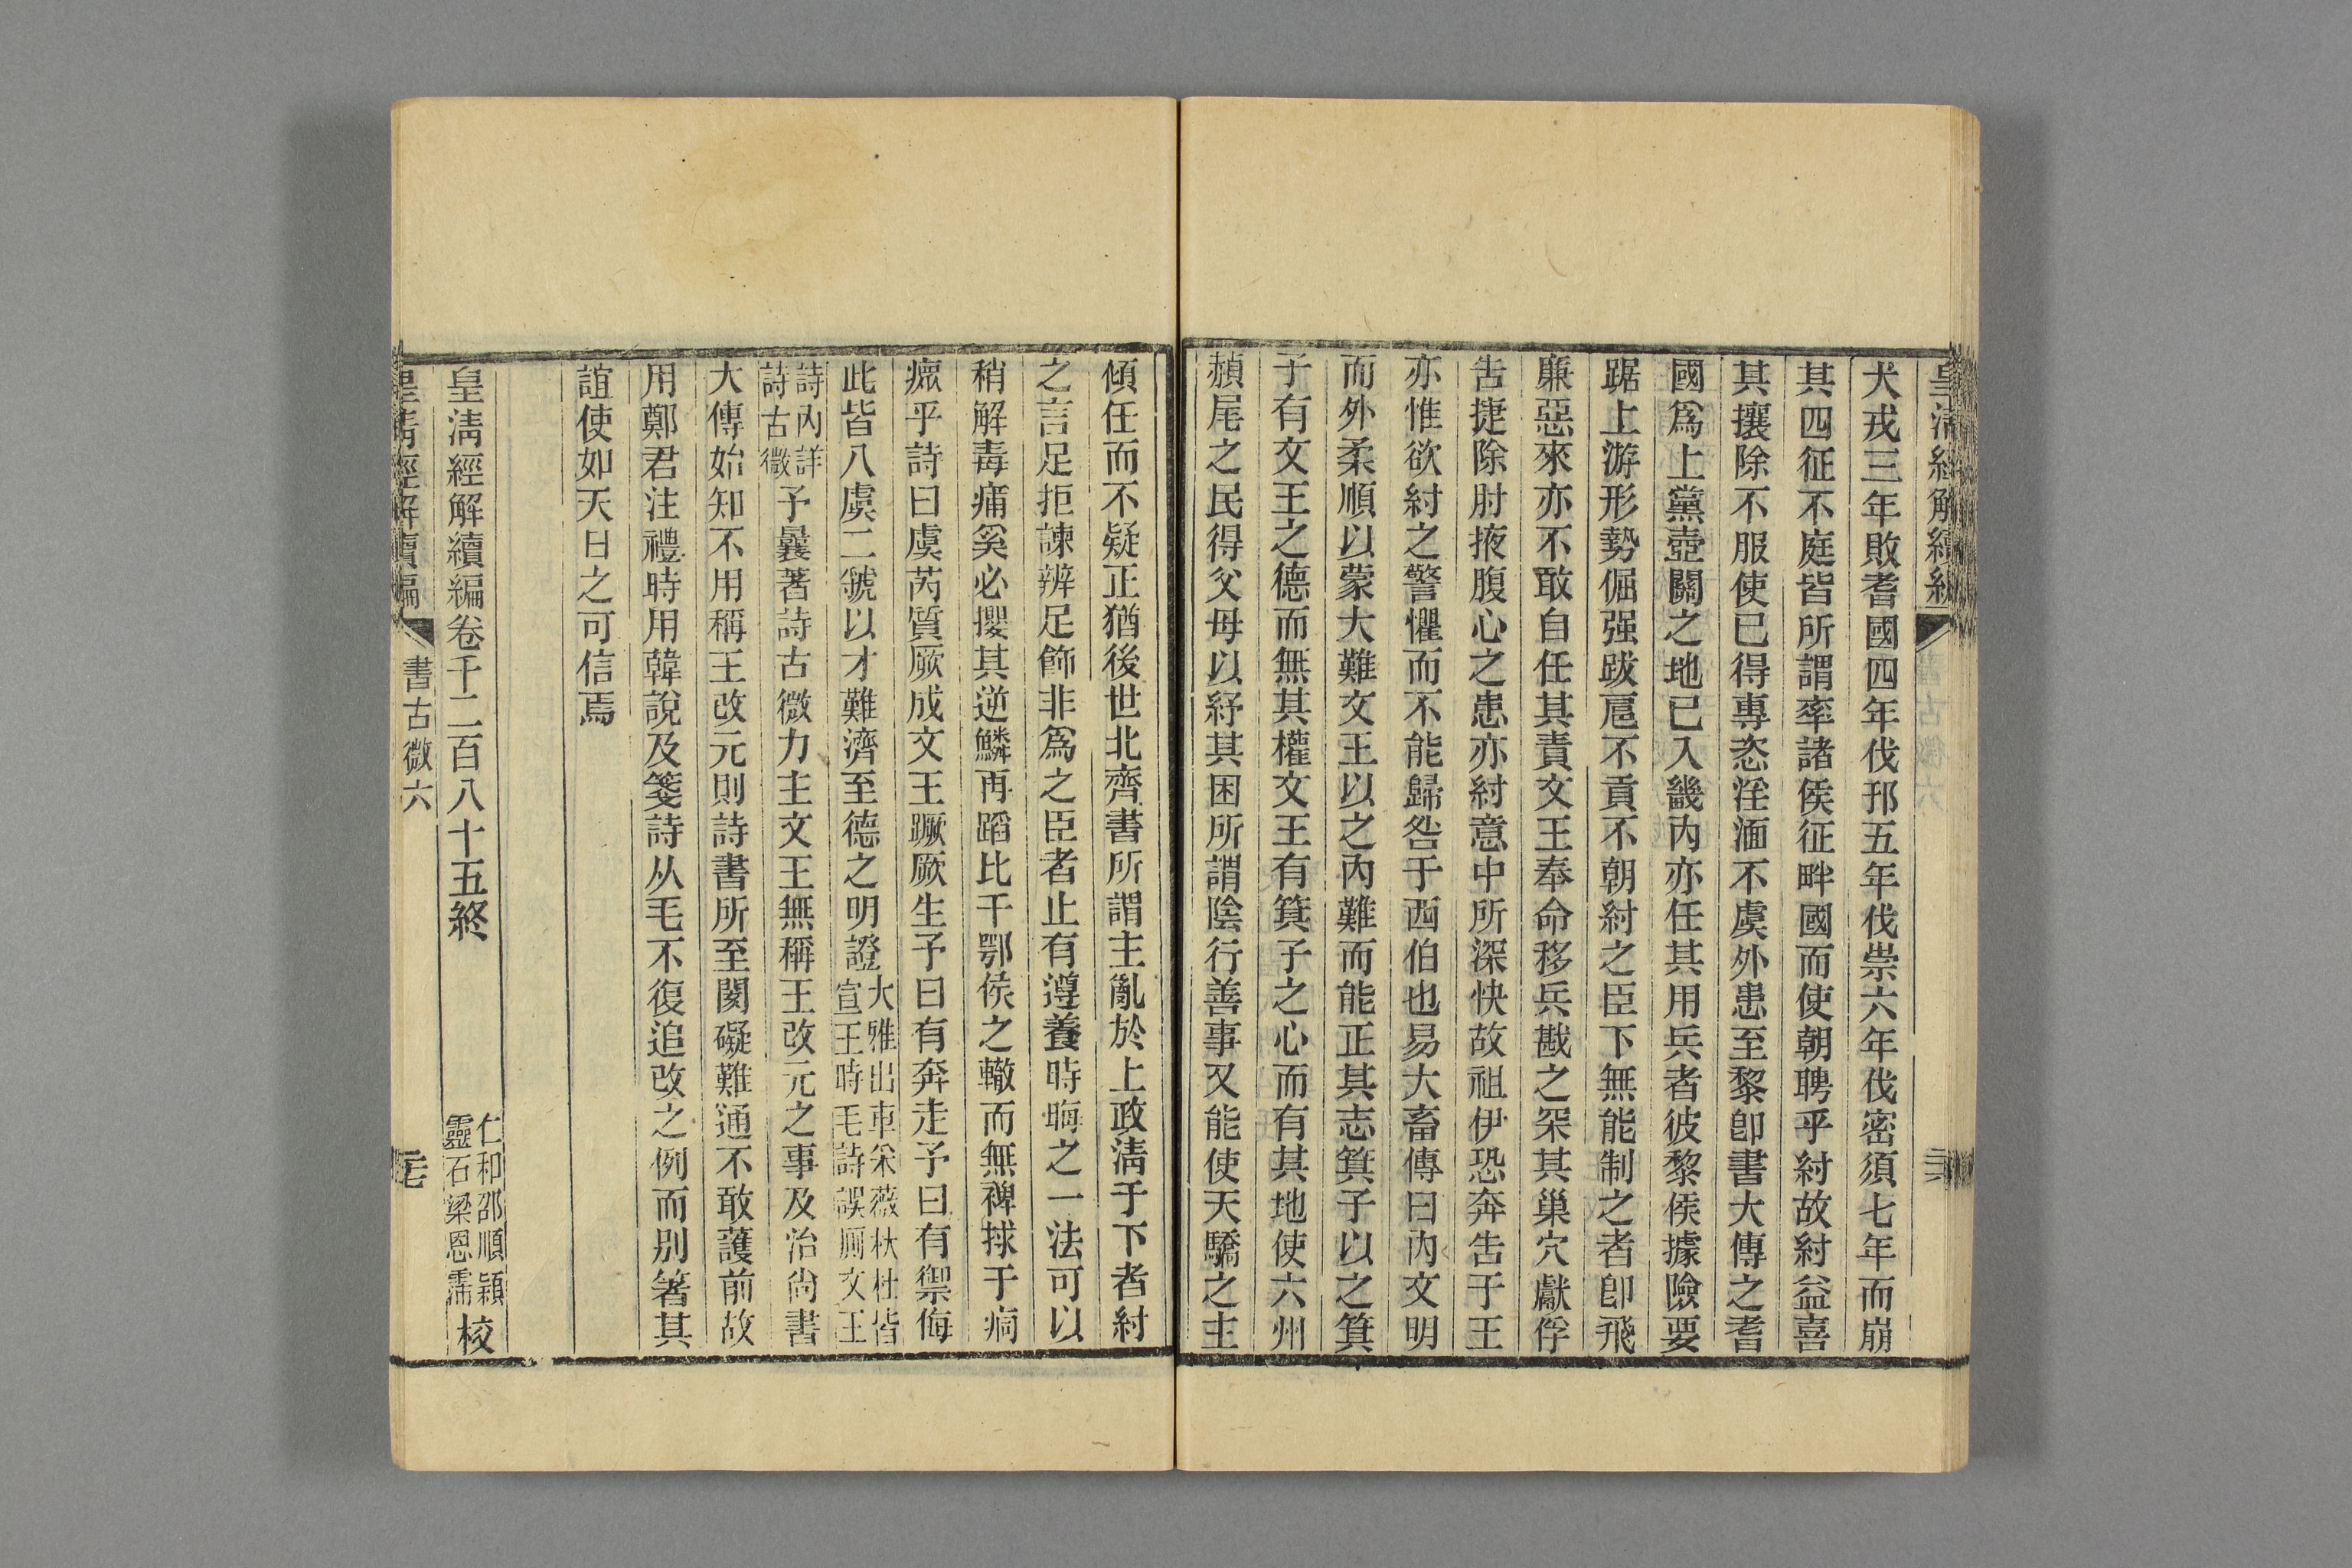 皇清經解續編
犬戎三年敗耆國四年伐邘五年伐崇六年伐密須七年而崩
其四征不庭皆所謂率諸侯征畔國而使朝聘乎紂故紂益喜
其攘除不服使已得專恣淫湎不虞外患至黎卽書大傳之耆
國爲上黨壺關之地已入畿內亦任其用兵者彼黎侯據險要
踞上游形勢倔强跋扈不貢不朝紂之臣下無能制之者卽飛
廉惡來亦不敢自任其責文王奉命移兵戡之罙其巢穴獻俘
告捷除肘掖腹心之患亦紂意中所深快故祖伊恐奔告于王
亦惟欲紂之警懼而不能歸咎于西伯也易大畜傳曰內文明
而外柔順以蒙大難文王以之內難而能正其志箕子以之箕
子有文王之德而無其權文王有箕子之心而有其地使六州
赬尾之民得父母以紓其困所謂陰行善事又能使天驕之主
傾任而不疑正猶後世北齊書所謂主亂於上政淸于下者紂
之言足拒諫辨足飾非爲之臣者止有遵養時晦之一法可以
稍解毒痡奚必攖其逆鱗再蹈比干鄂侯之轍而無裨捄于痌
瘝乎詩曰虞芮質厥成文王蹶厥生予曰有奔走予曰有禦侮
此皆八虞二虢以才難濟至德之明證大雅出車采薇杕杜皆
宣王時毛詩誤屬文王
詩內詳
詩古微予曩著詩古微力主文王無稱王改元之事及治尙書
大傳始知不用稱王改元則詩書所至閡礙難通不敢護前故
用鄭君注禮時用韓說及箋詩从毛不復追改之例而別箸其
誼使如天日之可信焉
皇淸經解續編卷千二百八十五終
仁和邵順穎
靈石梁恩霈校
皇淸經解續編 書古微六